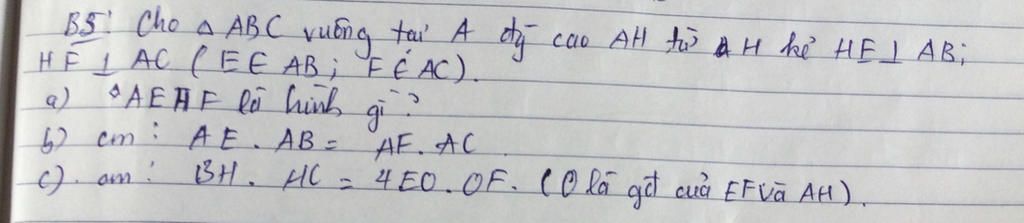 B5: Cho △ ABC vuông tại A đg cao AH từ H kẻ HE ⊥ AB;
HF ⊥ AC (E ∈ AB; F ∈ AC).
a) ◇AEHF là hình gì?
b) cm: AE. AB = AF. AC
c). cm: BH. HC = 4EO. OF. (O là gđ của EF và AH).